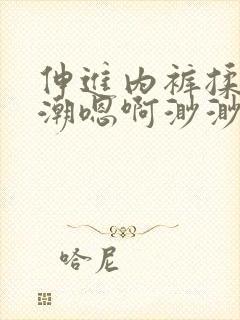 伸进内裤揉
潮嗯啊渺渺
哈尼